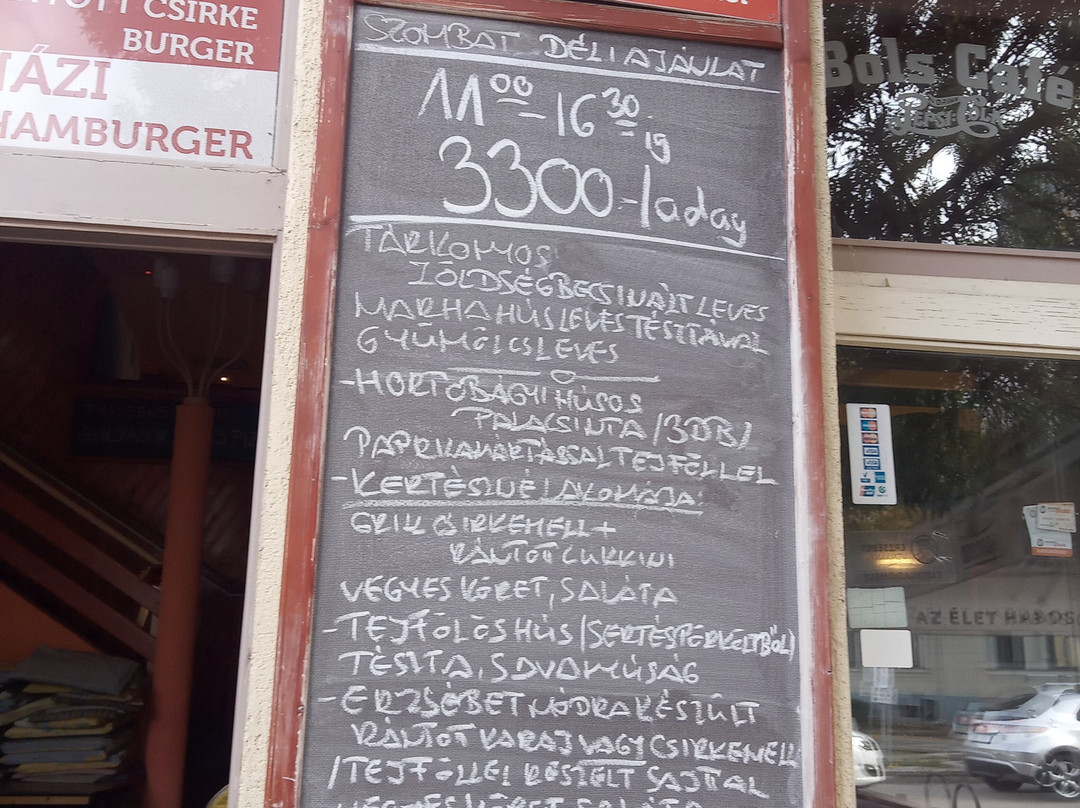 RTOTT CSIRKE
BURGER
HÁZI
HAMBURGER
SZOMBAT DÉLI AJÁNLAT
11 00 - 16 30 ig
3300.-/adag
TÁRKONYOS
ZÖLDSÉGBECSINÁLT LEVES
MARHAHÚSLEVES TÉSZTÁVAL
GYÜMÖLCSLEVES
-HORTOBÁGYI HÚSOS
PALACSINTA /3DB/
PAPRIKAMÁRTÁSSAL TEJFÉLLEL
-KERTÉSZNÉ LAKOMÁJA:
GRILL CSIRKEMELL +
RÁNTOT CUKKINI
VEGYES KÖRET, SALÁTA
-TEJFÖLÖS HÚS /SERTÉSPÖRKELTBŐL/
TÉSZTA, SAVANYÚSÁG
-ERZSÉBET MÓDRA KÉSZÜLT
RÁNTOT KARAJ VAGY CSIRKEMELL
/TEJFÖLLEL RESZELT SAJTTAL
VEGYES KÖRET SALÁTA
Bols Café
AZ ÉLET HABOS